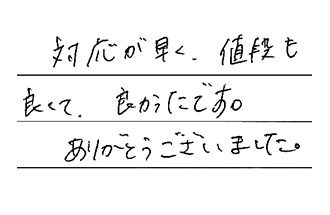 対応が早く、値段も
良くて、良かったです。
ありがとうございました。